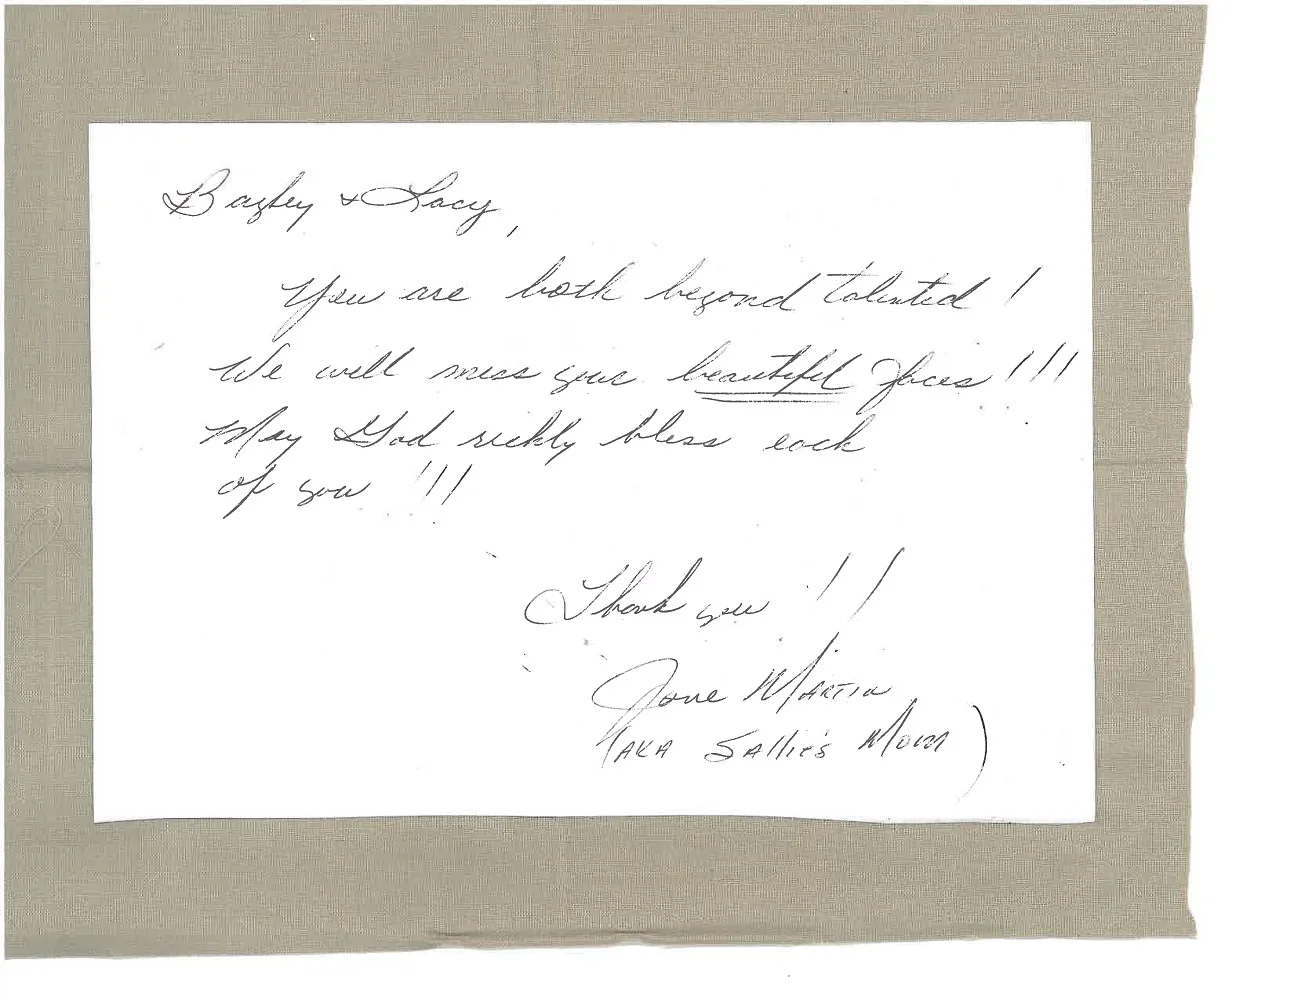 Bagley & Lacy,
You are both beyond talented!
We will miss your beautiful faces!!!
May God richly bless each
of you!!!
Thank you!!
Jane Martin
(AKA Sallie's Mom)